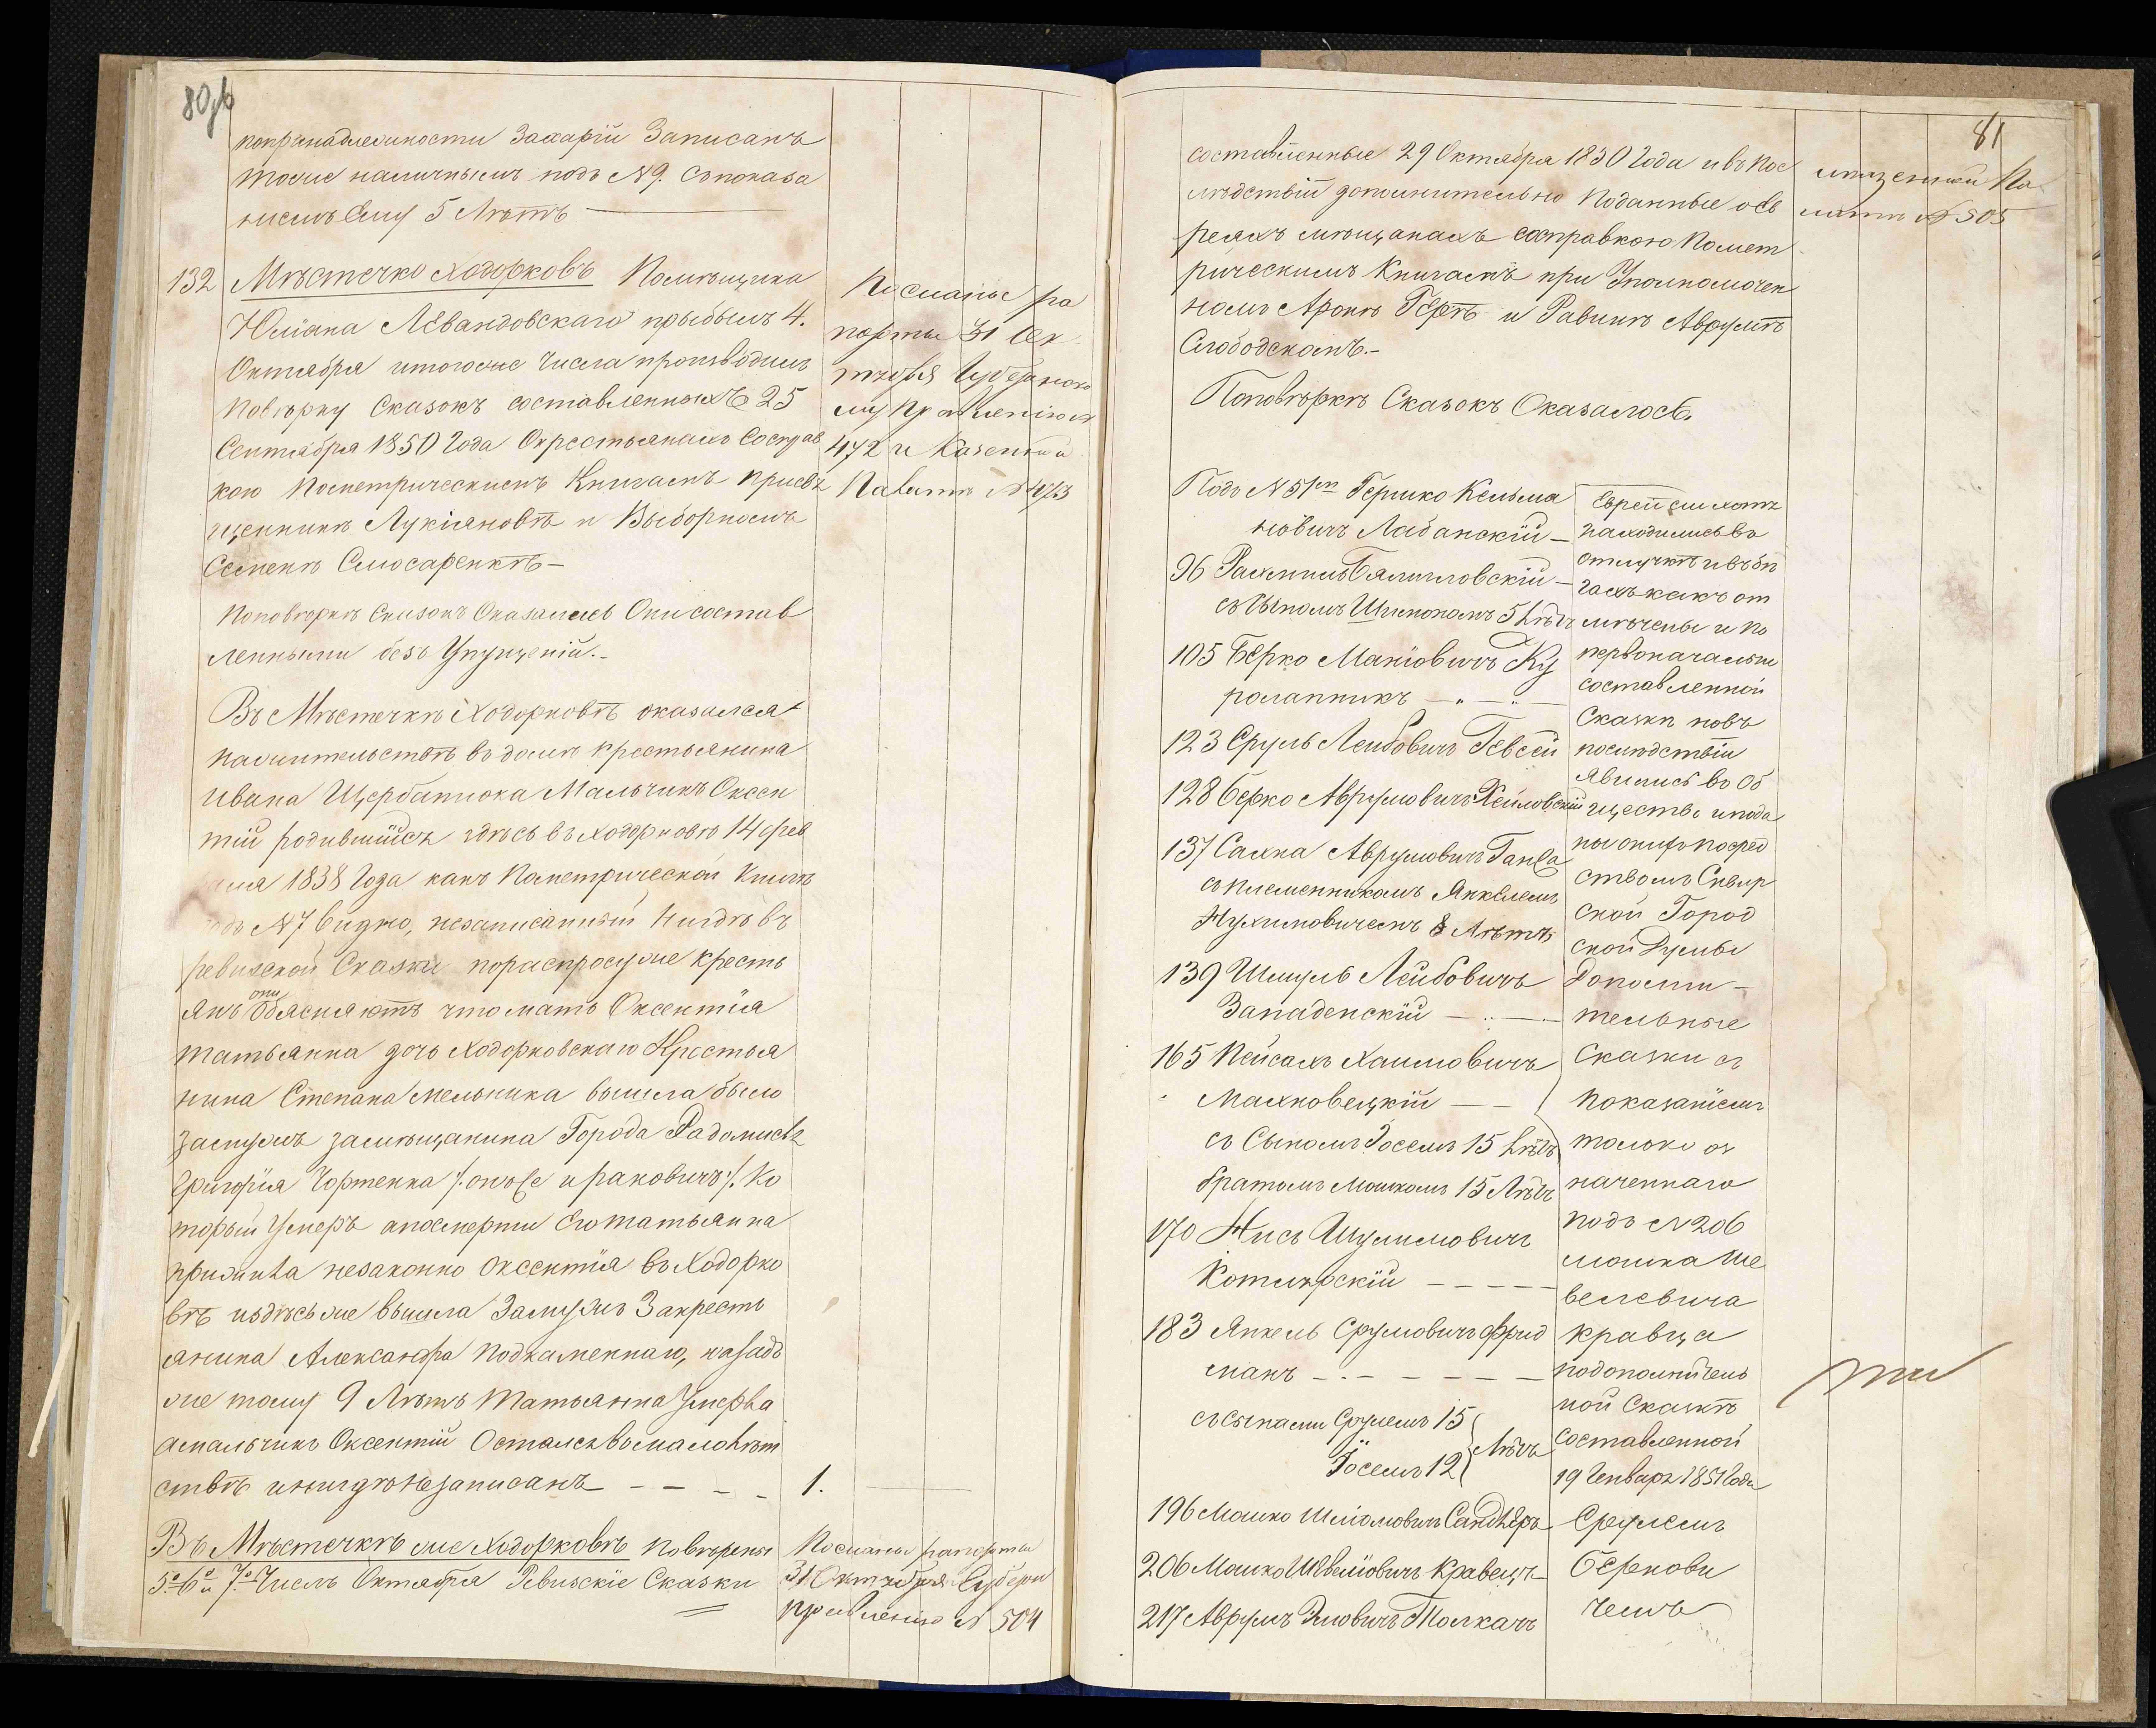 80об
попринадлежности Захарій Записанъ
тоже наличнымъ подъ №9. съпоказа
ніемъ Ему 5 Лѣтъ
132 Мѣстечко Ходорковъ Помѣщика
Юліана Лѣвандовскаго прыбылъ 4.
Октября итогоже числа производилъ
повѣрку Сказокъ составленныхъ 25
Сентября 1850 Года Окрестьянахъ Сосправ
кою пометрическимъ Книгамъ присвя
щенникѣ Лукіановѣ и Выборномъ
Семенѣ Слюсаренкѣ
Поповѣркѣ Сказокъ Оказалось Они состав
ленными безъ Упущеній.
Въ Мѣстечкѣ Ходорковѣ оказался
нажительствѣ въ домѣ крестьянина
Ивана Щербатюка Мальчикъ Оксен
тій родившійся здѣсь въ Ходорковѣ 14 фев
1838 Года какъ Пометрической Книгѣ
№7 видно, незаписанный нигдѣ въ
ревизской Сказкѣ пораспросу же кресть
янъ они объясняютъ что мать Оксентія
Татьянна дочь Ходорковскаго Крестья
нина Степана Мельника вышла было
замужъ замѣщанина Города Радомысля
Григорія Чортенка /: онъже ираковичъ :/ Ко
торый Умеръ апосмерти Его Татьянна
прижила незаконно Оксентія въ Ходорко
вѣ издѣсь же вышла Замужъ Закресть
янина Александра Подкаменнаго, назадъ
же тому 9 Лѣтъ Татьянна Умерла
амальчикъ Оксентій Остался вомалолѣт
ствѣ инигдѣ Незаписанъ 1.
Въ Мѣстечкѣ же Ходорковѣ повѣрены
5го 6го и 7го Числъ Октября Ревизскіе Сказки
Посланы ра
порты 31 Ок
тября Губернско
му Правленію №
472 и Казенной
Палатѣ №473
Посланы рапорты
31 Октября Губерн
правленію № 504
81
составленные 29 Октября 1850 Года и въ пос
лѣдствіи дополнительно поданные о ев
реяхъ мѣщанахъ сосправкою помет
рическимъ Книгамъ при Уполномочен
номъ Аронѣ Гѣрѣ и Равинѣ Аврумѣ
Слободскомъ.
Поповѣркѣ Сказокъ Оказалось.
Палатѣ № 505
Подъ №51мъ Гершко Кельма
новичъ Лабанскій
96 Рахмиль Бялиловскій
съ Сыномъ Шимономъ 5 Лѣтъ
105 Берко Маніовичъ Ку
ролапникъ
123 Сруль Лейбовичъ Гевсей
128 Берко Аврумовичъ Хейловскій
137 Сахна Аврумовичъ Ганжа
съ племенникомъ Янкелемъ
Нухимовичемъ 8 Лѣтъ
139 Шмуль Лейбовичъ
Западенскій
165 Пейсахъ Хаимовичъ
Махновецкій
съ Сыномъ Іосемъ 15 Лѣтъ
братомъ Мошкомъ 15 Лѣтъ
170 Нисъ Шулимовичъ
Котлярскій
183 Янкель Срулювичъ Фрид
манъ
съ сынами Срулемъ 15
Іосемъ 12 Лѣтъ
196 Мошко Шліомовичъ Сандлѣръ
206 Мошко Шевелювичъ Кравецъ
217 Аврумъ Эліовичъ Толкачъ
Евреи сіи хотя
находились въ
отлучкѣ и въ бѣ
гахъ какъ от
мѣчены и по
первоначально
составленной
Сказкѣ новъ
послѣдствіи
явились во Об
ществѣ и пода
ны они посред
ствомъ Сквир
ской Город
ской Думы
Дополни
тельные
Сказки съ
показаніемъ
только оз
наченнаго
подъ №206
Мошка Ше
велевича
Кравца
подополнитель
ной Сказкѣ
составленной
19 Генваря 1851 Года
Срулемъ
Беркови
чемъ